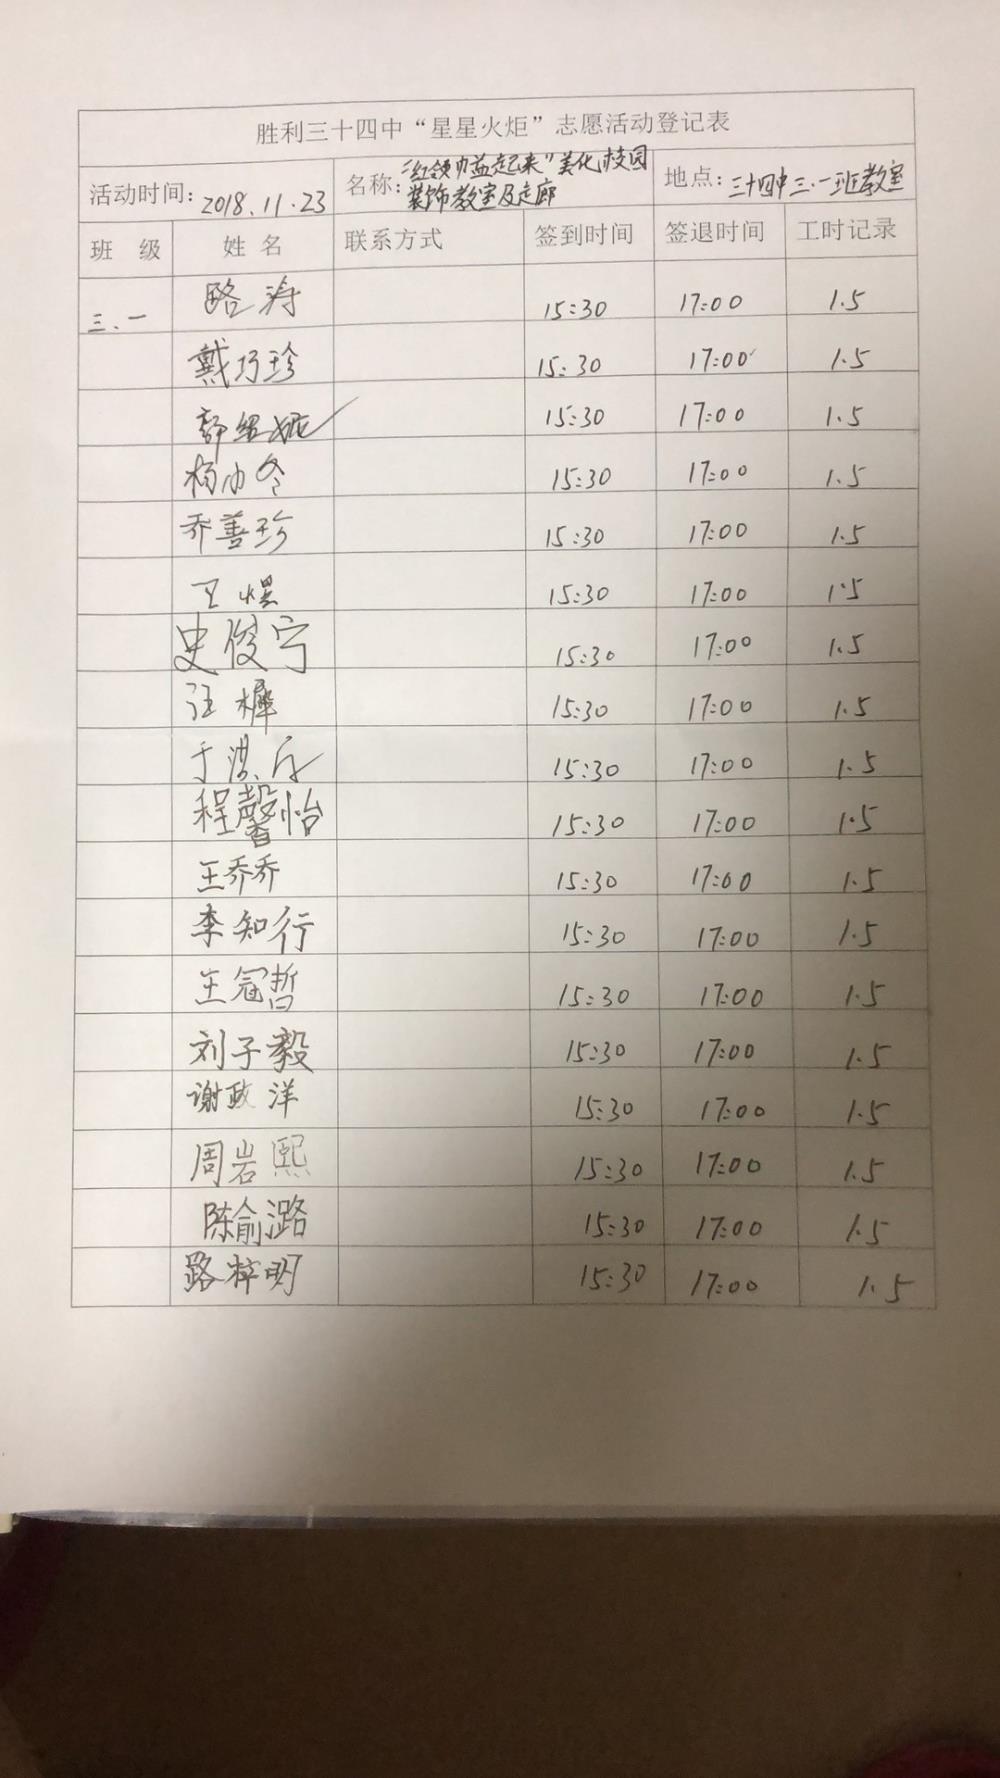 胜利三十四中“星星火炬”志愿活动登记表
活动时间：2018.11.23 名称：“红领巾益起来”美化校园装饰教室及走廊 地点：三十四中三.一班教室
班 级 姓 名 联系方式 签到时间 签退时间 工时记录
三.一 路涛 15:30 17:00 1.5
戴巧珍 15:30 17:00 1.5
15:30 17:00 1.5
杨小冬 15:30 17:00 1.5
乔善珍 15:30 17:00 1.5
王煜 15:30 17:00 1.5
史俊宁 15:30 17:00 1.5
汪樨 15:30 17:00 1.5
于洪 15:30 17:00 1.5
程馨怡 15:30 17:00 1.5
王乔乔 15:30 17:00 1.5
李知行 15:30 17:00 1.5
王冠哲 15:30 17:00 1.5
刘子毅 15:30 17:00 1.5
谢政洋 15:30 17:00 1.5
周岩熙 15:30 17:00 1.5
陈俞潞 15:30 17:00 1.5
路梓明 15:30 17:00 1.5